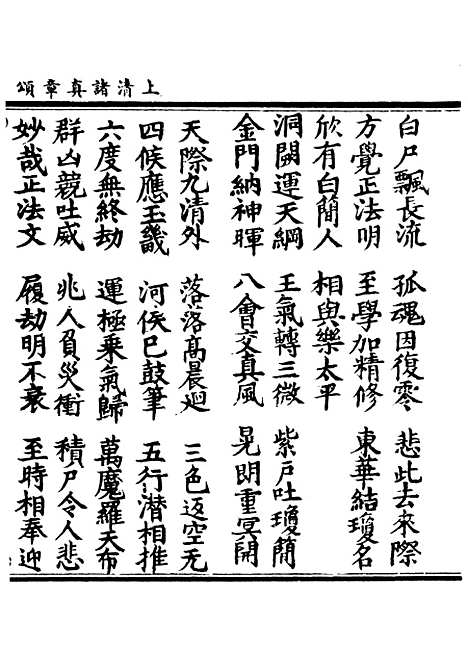 上清諸真章頌
白尸飄長流　孤魂因復零　悲此去來際
方覺正法明　至學加精修　東華結瓊名
欣有白簡人　相與樂太平
洞闕運天綱　王氣轉三微　紫戶吐瓊簡
金門納神暉　八會交真風　晃朗重冥開
天際九清外　落落高晨迴　三色返空无
四候應王畿　河侯已鼓筆　五行潛相推
六度無終劫　運極乘氣歸　萬魔羅天布
群凶競吐威　兆人負災衝　積尸令人悲
妙哉正法文　履劫明不衰　至時相奉迎